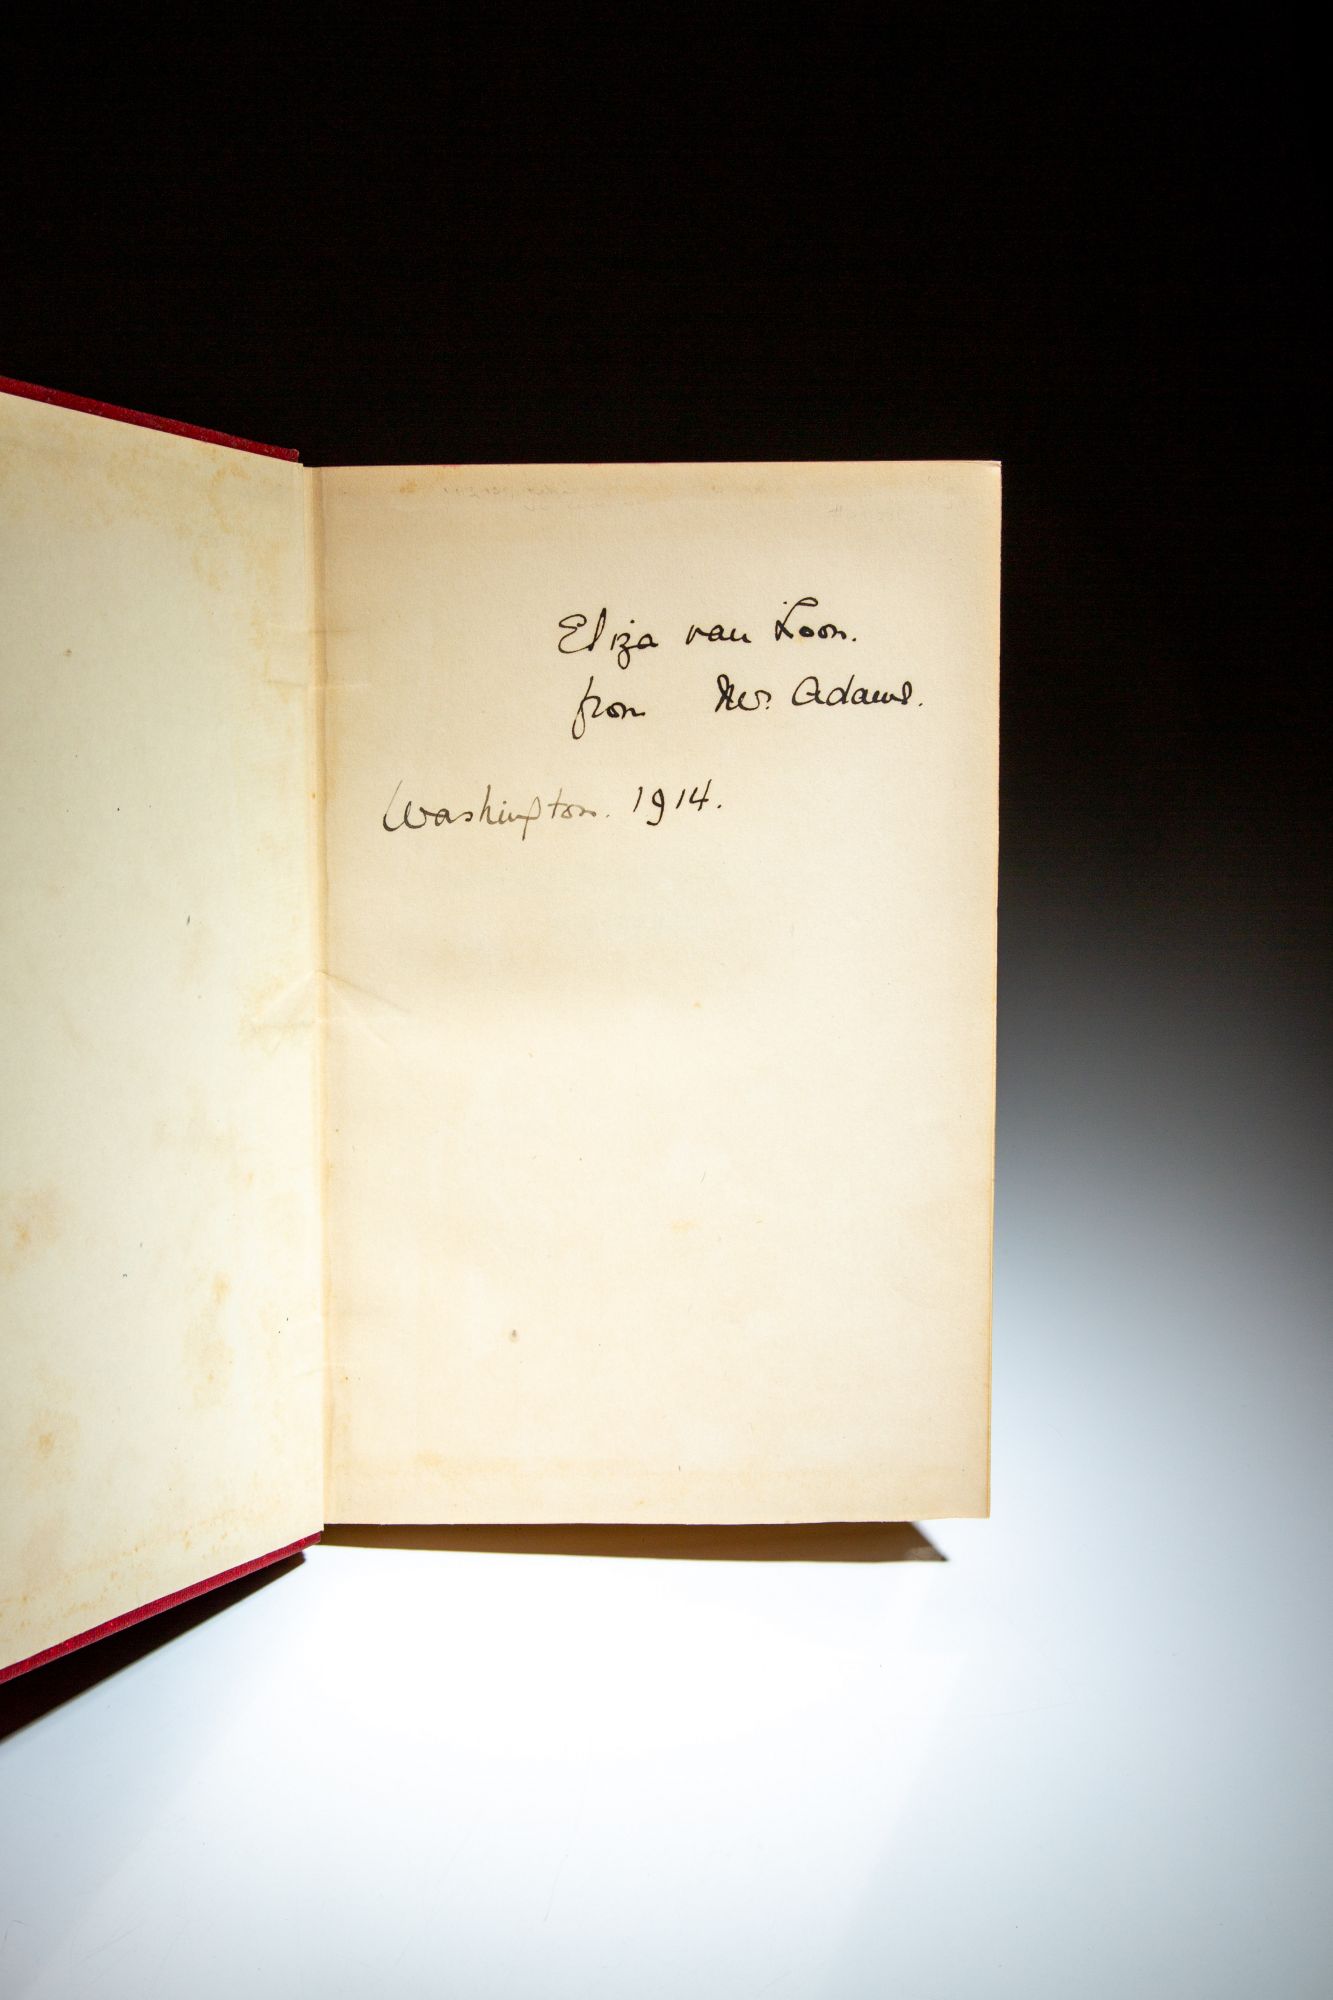 Eliza van Loon.
from Mr. Adams.
Washington. 1914.